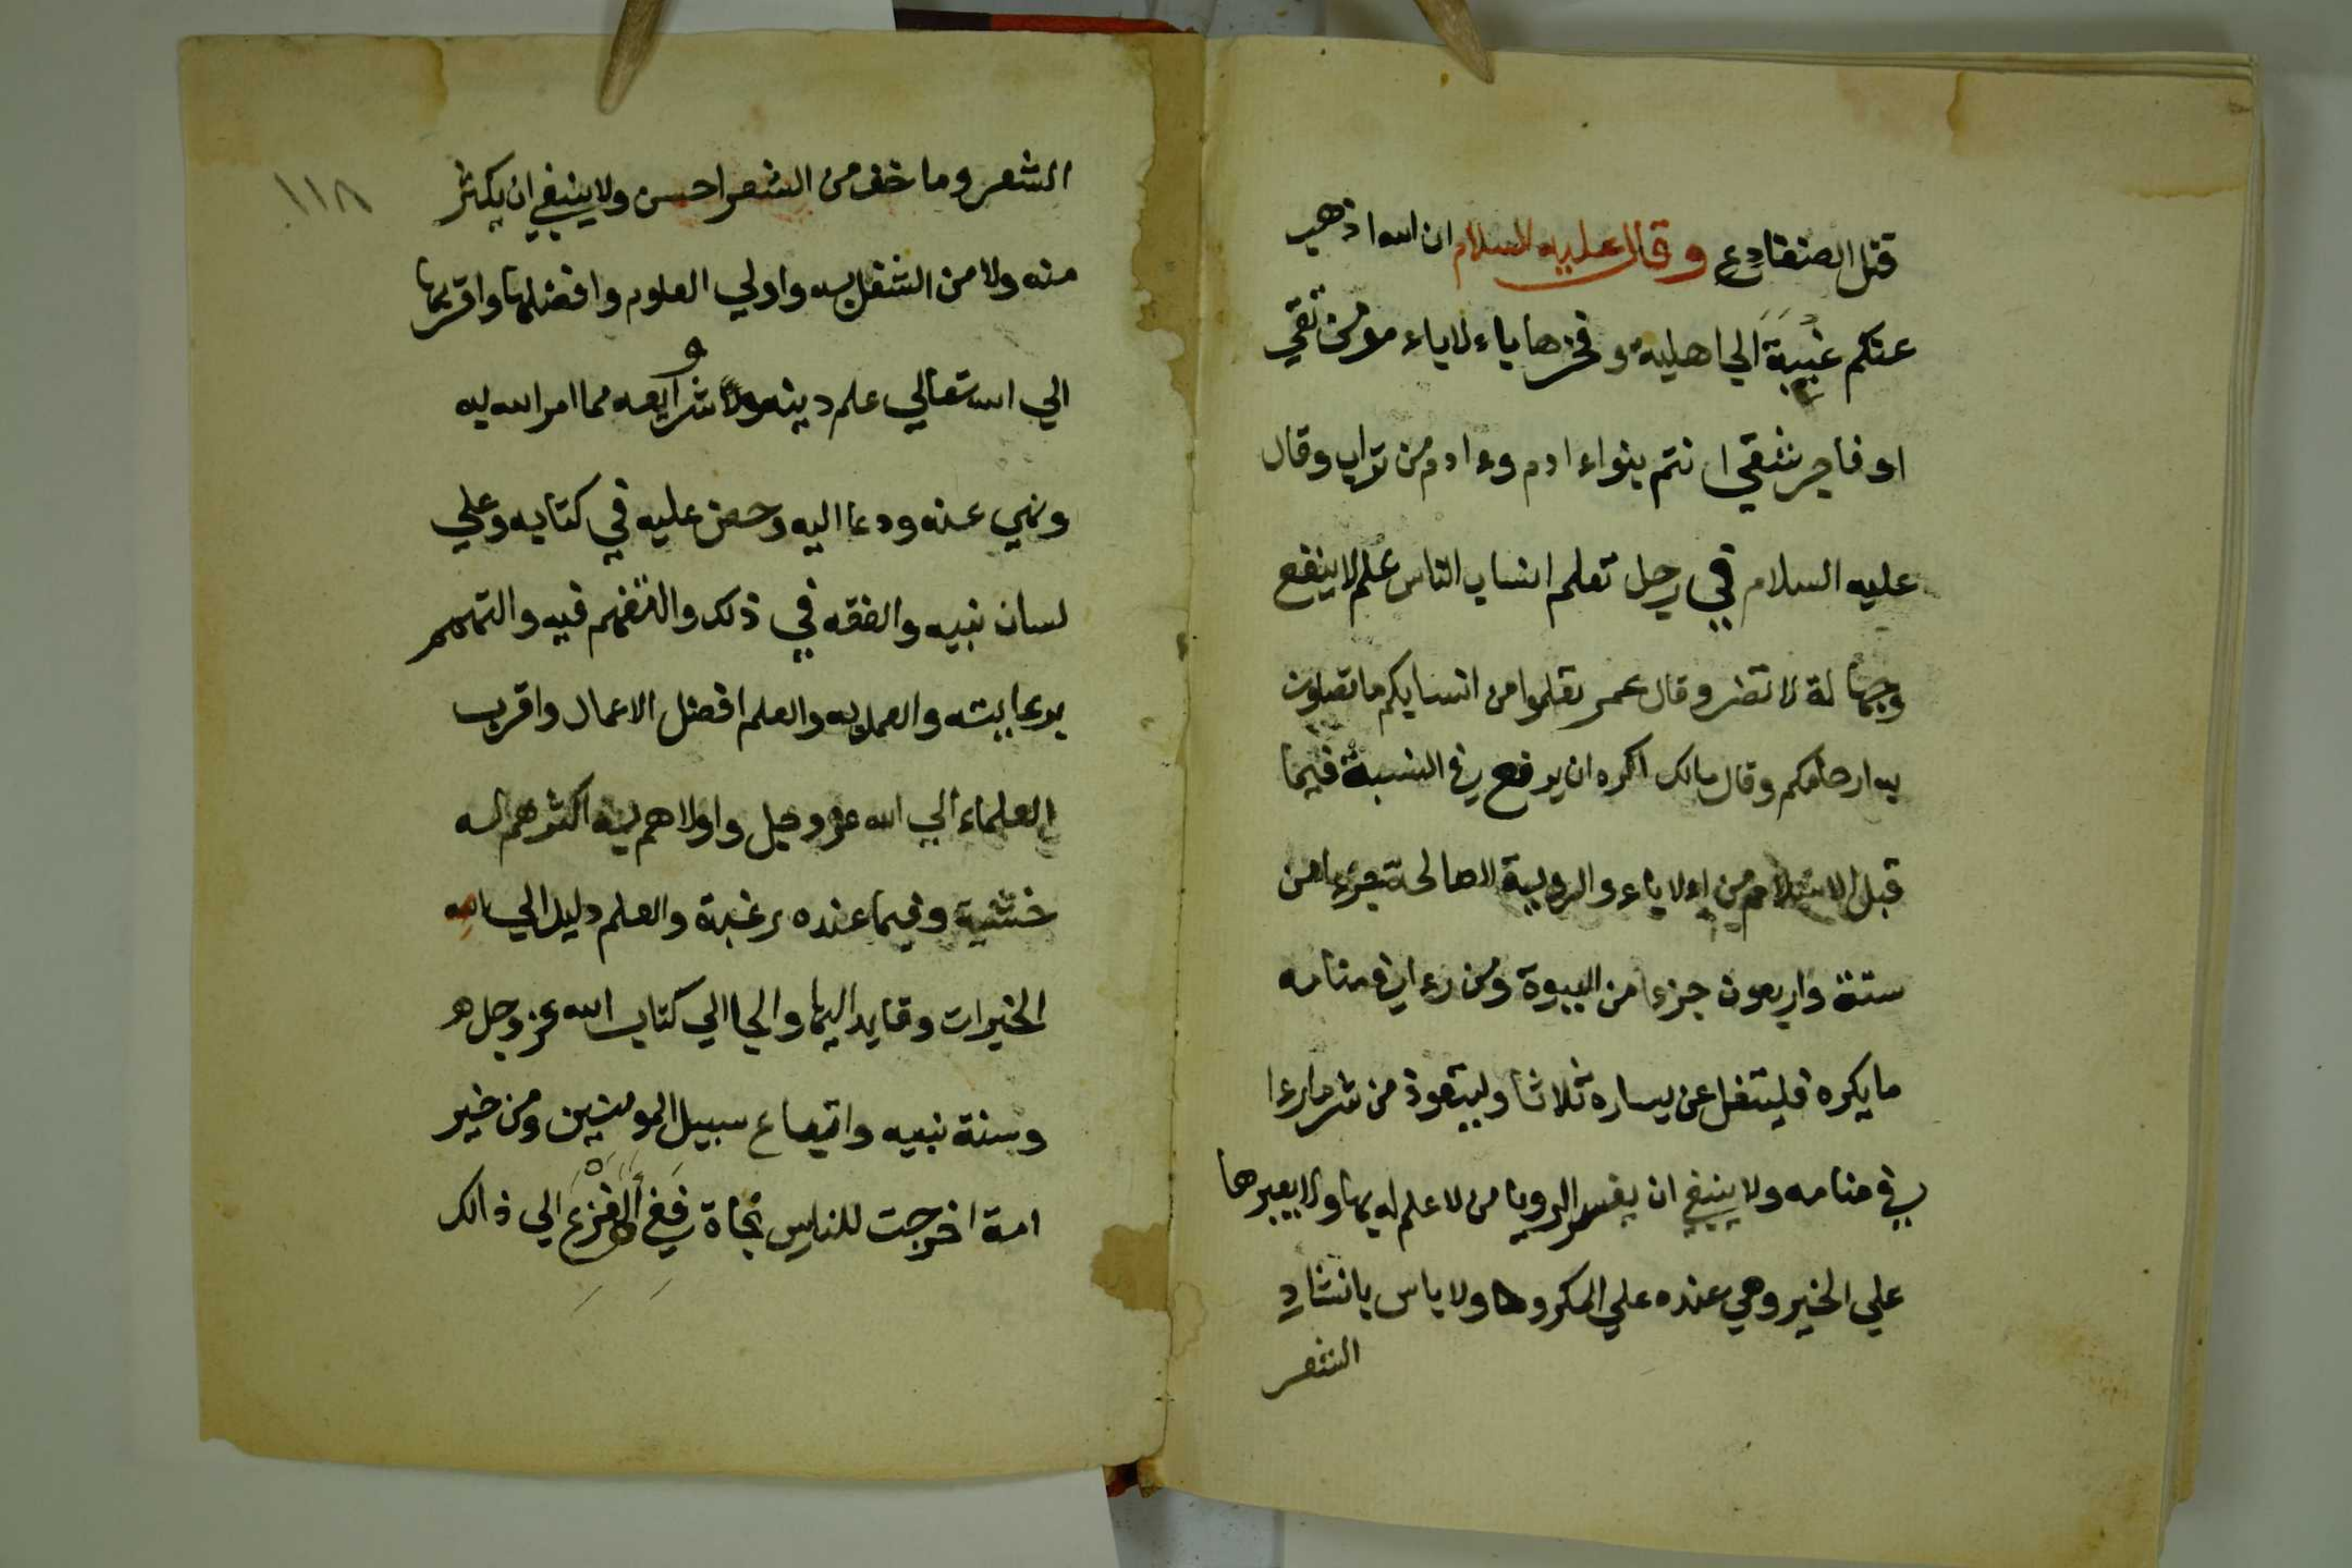 قتل الضفادع وقال عليه السلام ان الله اذهب
عنكم غبية الجاهلية وفخرها باء لاباء مومن تقي
او فاجر شقي انتم بنواء ادم وء ادم من تراب وقال
عليه السلام في رجل تعلم انساب الناس علم لا ينفع
وجهالة لا تضر وقال عمر تعلموا من انسابكم ما تصلون
به ارحامكم وقال مالك اكره ان يرفع في النسبة فيما
قبل الاسلام من الاباء والروية الصالحة جزء من
ستة واربعون جزءا من النبوة ومن رءا في منامه
ما يكره فليتفل عن يساره ثلاثا وليتعوذ من شر ما رءا
في منامه ولا ينبغي ان يفسر الرويا من لا علم له بها ولا يعبرها
علي الخير وهي عنده علي المكروها ولا باس بانشاد
الشعر
١١٨
الشعر وما خف من الشعر احسن ولا ينبغي ان يكثر
منه ولا من الشغل به واولي العلوم وافضلها واقربها
الي الله تعالي علم دينه وشرايعه مما امر الله به
ونهي عنه ودعا اليه وحض عليه في كتابه وعلي
لسان نبيه والفقه في ذلك والتفهم فيه والتهمم
برعايته والعمل به والعلم افضل الاعمال واقرب
العلماء الي الله عز وجل واولاهم به اكثرهم له
خشية وفيما عنده رغبة والعلم دليل الي
الخيرات وقايد اليها والجا الي كتاب الله عز وجل
وسنة نبيه واتباع سبيل المومنين ومن خير
امة اخرجت للناس نجاة ففي الفزع الي ذالك